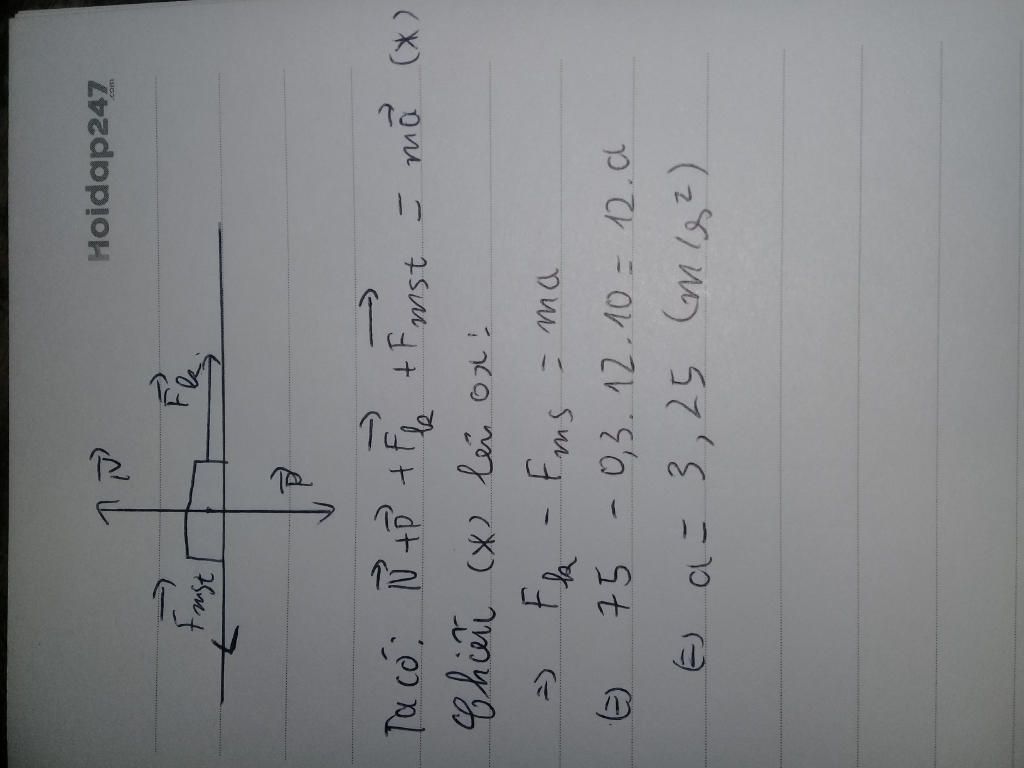 Hoidap247
.com
N⃗
F⃗mst
F⃗k
P⃗
Ta có: N⃗ + P⃗ + F⃗k + F⃗mst = ma⃗ (x)
Chiếu (x) lên ox:
=> Fk - Fms = ma
(=) 75 - 0,3.12.10 = 12.a
(=) a = 3,25 (m/s²)